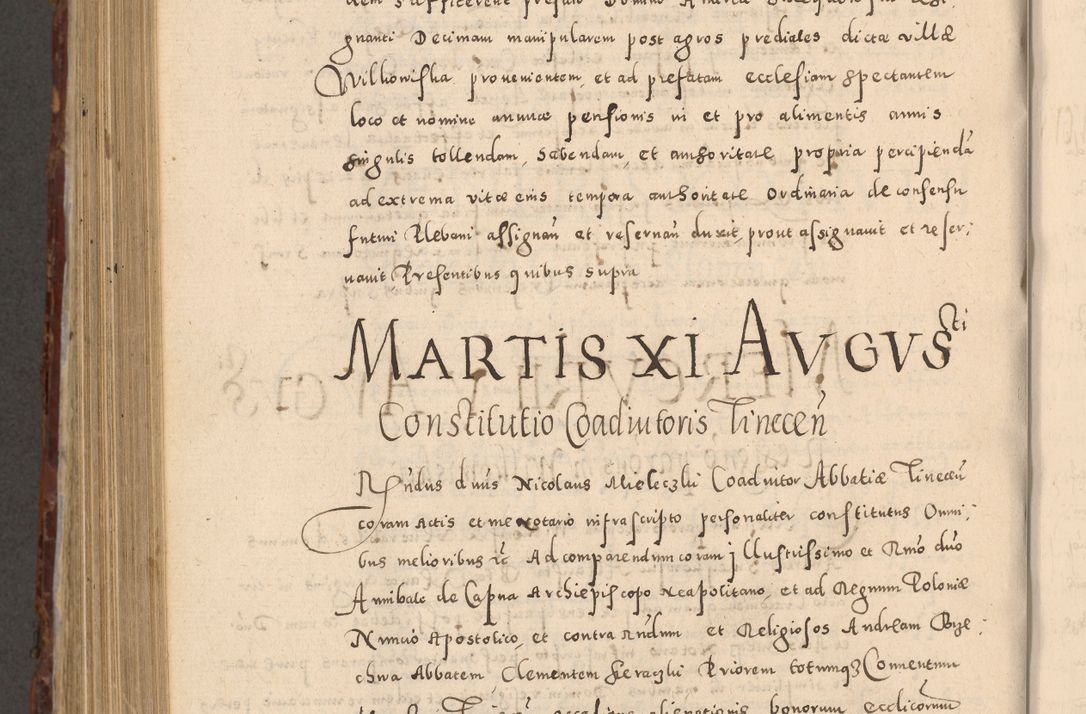 gnanti Decimam manipularem post agros prediales dictæ villæ
Wilkowiska prouenientem, et ad prefatam ecclesiam spectantem
loco et nomine annuæ pensionis ui et pro alimentis annis
singulis tollendam, habendam, et authoritate propria percipiendā
ad extrema vitæ eius tempora authoritate Ordinaria de consensu
futuri Plebani assignan̄ et reseruan̄ duxit, prout assignauit et reser:
uauit Presentibus quibus supra
MARTIS XI AVGVSti
Constitutio Coadiutoris Tinecen̄
Rn̄dus dn̄us Nicolaus Mieleczki Coadiutor Abbatiæ Tinecen̄
coram Actis et me notario infrascripto personaliter constitutus Omni:
bus melioribus ꝛc̄ Ad comparendum coram Illustrissimo et Rmō dn̄o
Annibale de Capua Archiepiscopo Neapolitano, et ad Regnum Poloniæ
Nuncio Apostolico, et contra Rn̄dum et Religiosos Andream Brze:
chwa Abbatem Clementem Sieraczki Priorem totumqȝ Conuentum
bonorum ecclicorum̄